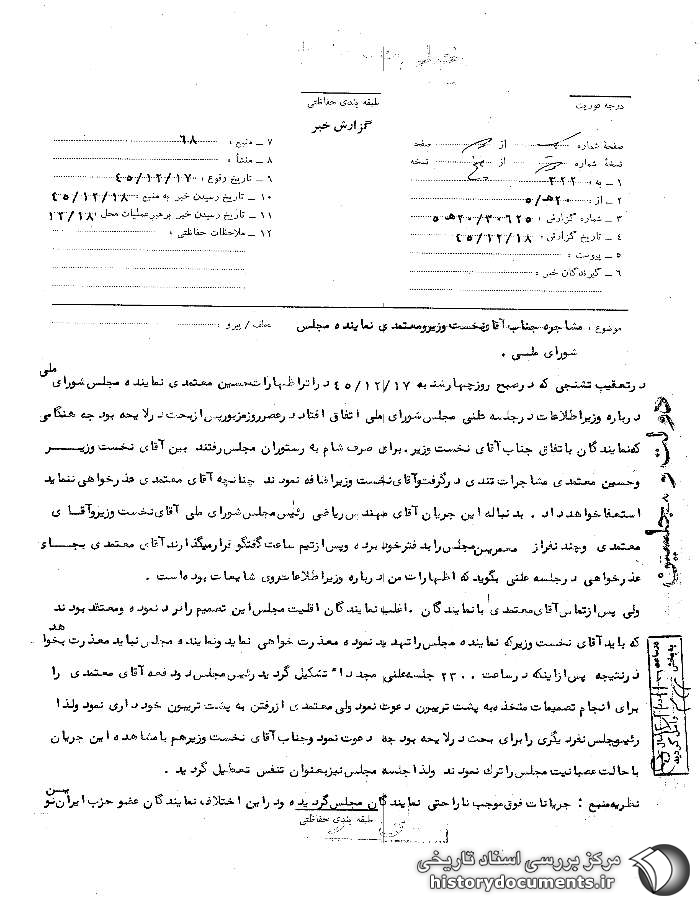 طبقه بندی حفاظتی
گزارش خبر
درجه فوریت
صفحهٔ شماره از صفحه
نسخهٔ شماره از نسخه
۱ ـ به : ۳۲۲
۲ ـ از : ۲۰هـ/۵
۳ ـ شماره گزارش : ۲۰/۳۰۶۲۵هـ۵
۴ ـ تاریخ گزارش : ۴۵/۱۲/۱۸
۵ ـ پیوست :
۶ ـ گیرندگان خبر :
۷ ـ منبع : ۶۸
۸ ـ منشأ :
۹ ـ تاریخ وقوع : ۴۵/۱۲/۱۷
۱۰ ـ تاریخ رسیدن خبر به منبع : ۴۵/۱۲/۱۸
۱۱ ـ تاریخ رسیدن خبر برهبر عملیات محل : ۱۲/۱۸
۱۲ ـ ملاحظات حفاظتی :
موضوع : مشاجره جناب آقای نخست وزیر و معتمدی نماینده مجلس
عطف / پیرو :
شورای ملی .
در تعقیب تشنجی که در صبح روز چهارشنبه ۴۵/۱۲/۱۷ در اثر اظهارات حسین معتمدی نماینده مجلس شورای ملی
درباره وزیر اطلاعات در جلسه علنی مجلس شورای ملی اتفاق افتاد در عصر روز مزبور پس از بحث در لایحه بودجه هنگامی
که نمایندگان باتفاق جناب آقای نخست وزیر . برای صرف شام به رستوران مجلس رفتند بین آقای نخست وزیر
و حسین معتمدی مشاجرات تندی در گرفت و آقای نخست وزیر اضافه نمودند چنانچه آقای معتمدی عذرخواهی ننماید
استعفا خواهد داد . بدنباله این جریان آقای مهندس ریاضی رئیس مجلس شورای ملی آقای نخست وزیر و آقای
معتمدی و چند نفر از معمرین مجلس را به دفتر خود برده و پس از نیم ساعت گفتگو قرار میگذارند آقای معتمدی بجای
عذرخواهی در جلسه علنی بگوید که اظهارات من درباره وزیر اطلاعات روی شایعات بوده است .
ولی پس از تماس آقای معتمدی با نمایندگان . اغلب نمایندگان اقلیت مجلس این تصمیم را رد نموده و معتقد بودند
که باید آقای نخست وزیر که نماینده مجلس را تهدید نموده معذرت خواهی نماید و نماینده مجلس نباید معذرت بخواهد
در نتیجه پس از اینکه در ساعت ۲۳۰۰ جلسه علنی مجدداً تشکیل گردید رئیس مجلس دو دفعه آقای معتمدی را
برای انجام تصمیمات متخذه به پشت تریبون دعوت نمود ولی معتمدی از رفتن به پشت تریبون خودداری نمود ولذا
رئیس مجلس نفر دیگری را برای بحث در لایحه بودجه دعوت نمود و جناب آقای نخست وزیر هم با مشاهده این جریان
با حالت عصبانیت مجلس را ترک نمودند ولذا جلسه مجلس نیز بعنوان تنفس تعطیل گردید .
نظریه منبع : جریانات فوق موجب ناراحتی نمایندگان مجلس گردیده و در این اختلاف نمایندگان عضو حزب ایران نوین
طبقه بندی حفاظتی
دولت و مجلسین
مرکز بررسی اسناد تاریخی
historydocuments.ir